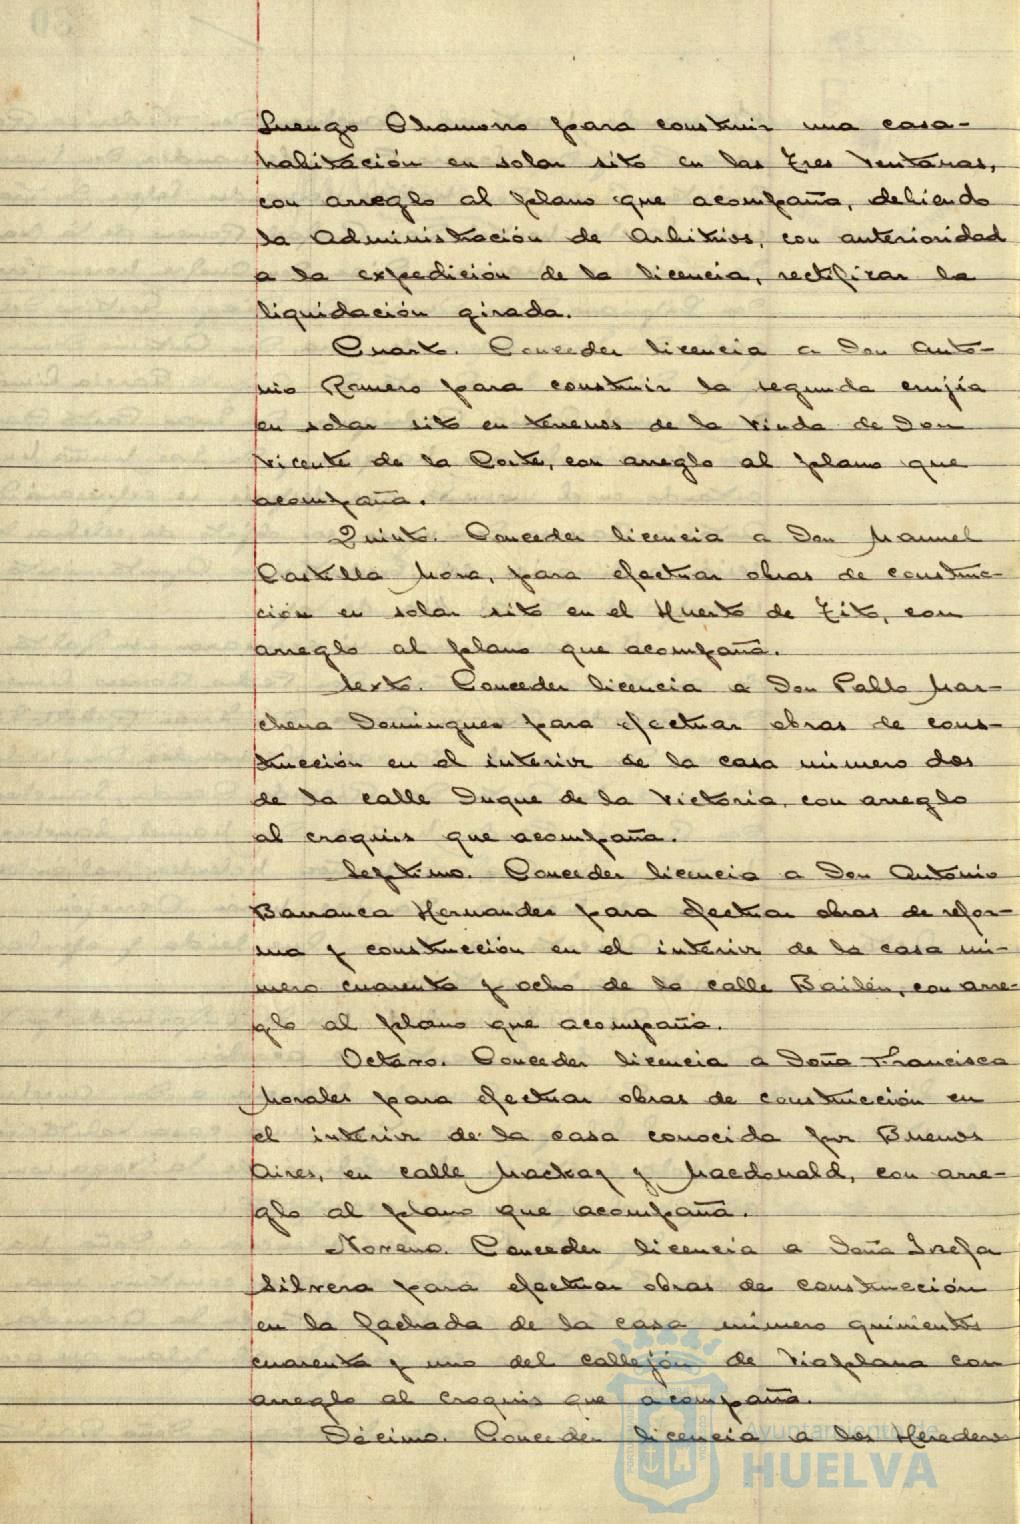 Luengo Chamorro para construir una casa-
habitación en solar sito en las Tres Ventanas,
con arreglo al plano que acompaña, debiendo
la Administración de Arbitrios, con anterioridad
a la expedición de la licencia, rectificar la
liquidación girada.
Cuarto. Conceder licencia a Don Anto-
nio Romero para construir la segunda crujía
en solar sito en terrenos de la Viuda de Don
Vicente de la Corte, con arreglo al plano que
acompaña.
Quinto. Conceder licencia a Don Manuel
Castilla Mora, para efectuar obras de construc-
ción en solar sito en el Huerto de Tito, con
arreglo al plano que acompaña.
Sexto. Conceder licencia a Don Pablo Mar-
chena Dominguez para efectuar obras de cons-
trucción en el interior de la casa número dos
de la calle Duque de la Victoria, con arreglo
al croquis que acompaña.
Septimo. Conceder licencia a Don Antonio
Barranca Hernandez para efectuar obras de refor-
ma y construcción en el interior de la casa nú-
mero cuarenta y ocho de la calle Bailén, con arre-
glo al plano que acompaña.
Octavo. Conceder licencia a Doña Francisca
Morales para efectuar obras de construcción en
el interior de la casa conocida por Buenos
Aires, en calle Mackay y Macdonald, con arre-
glo al plano que acompaña.
Noveno. Conceder licencia a Doña Josefa
Silvera para efectuar obras de construcción
en la fachada de la casa número quinientos
cuarenta y uno del callejón de Viaplana con
arreglo al croquis que acompaña.
Décimo. Conceder licencia a los Herederos
Ayuntamiento de
HUELVA